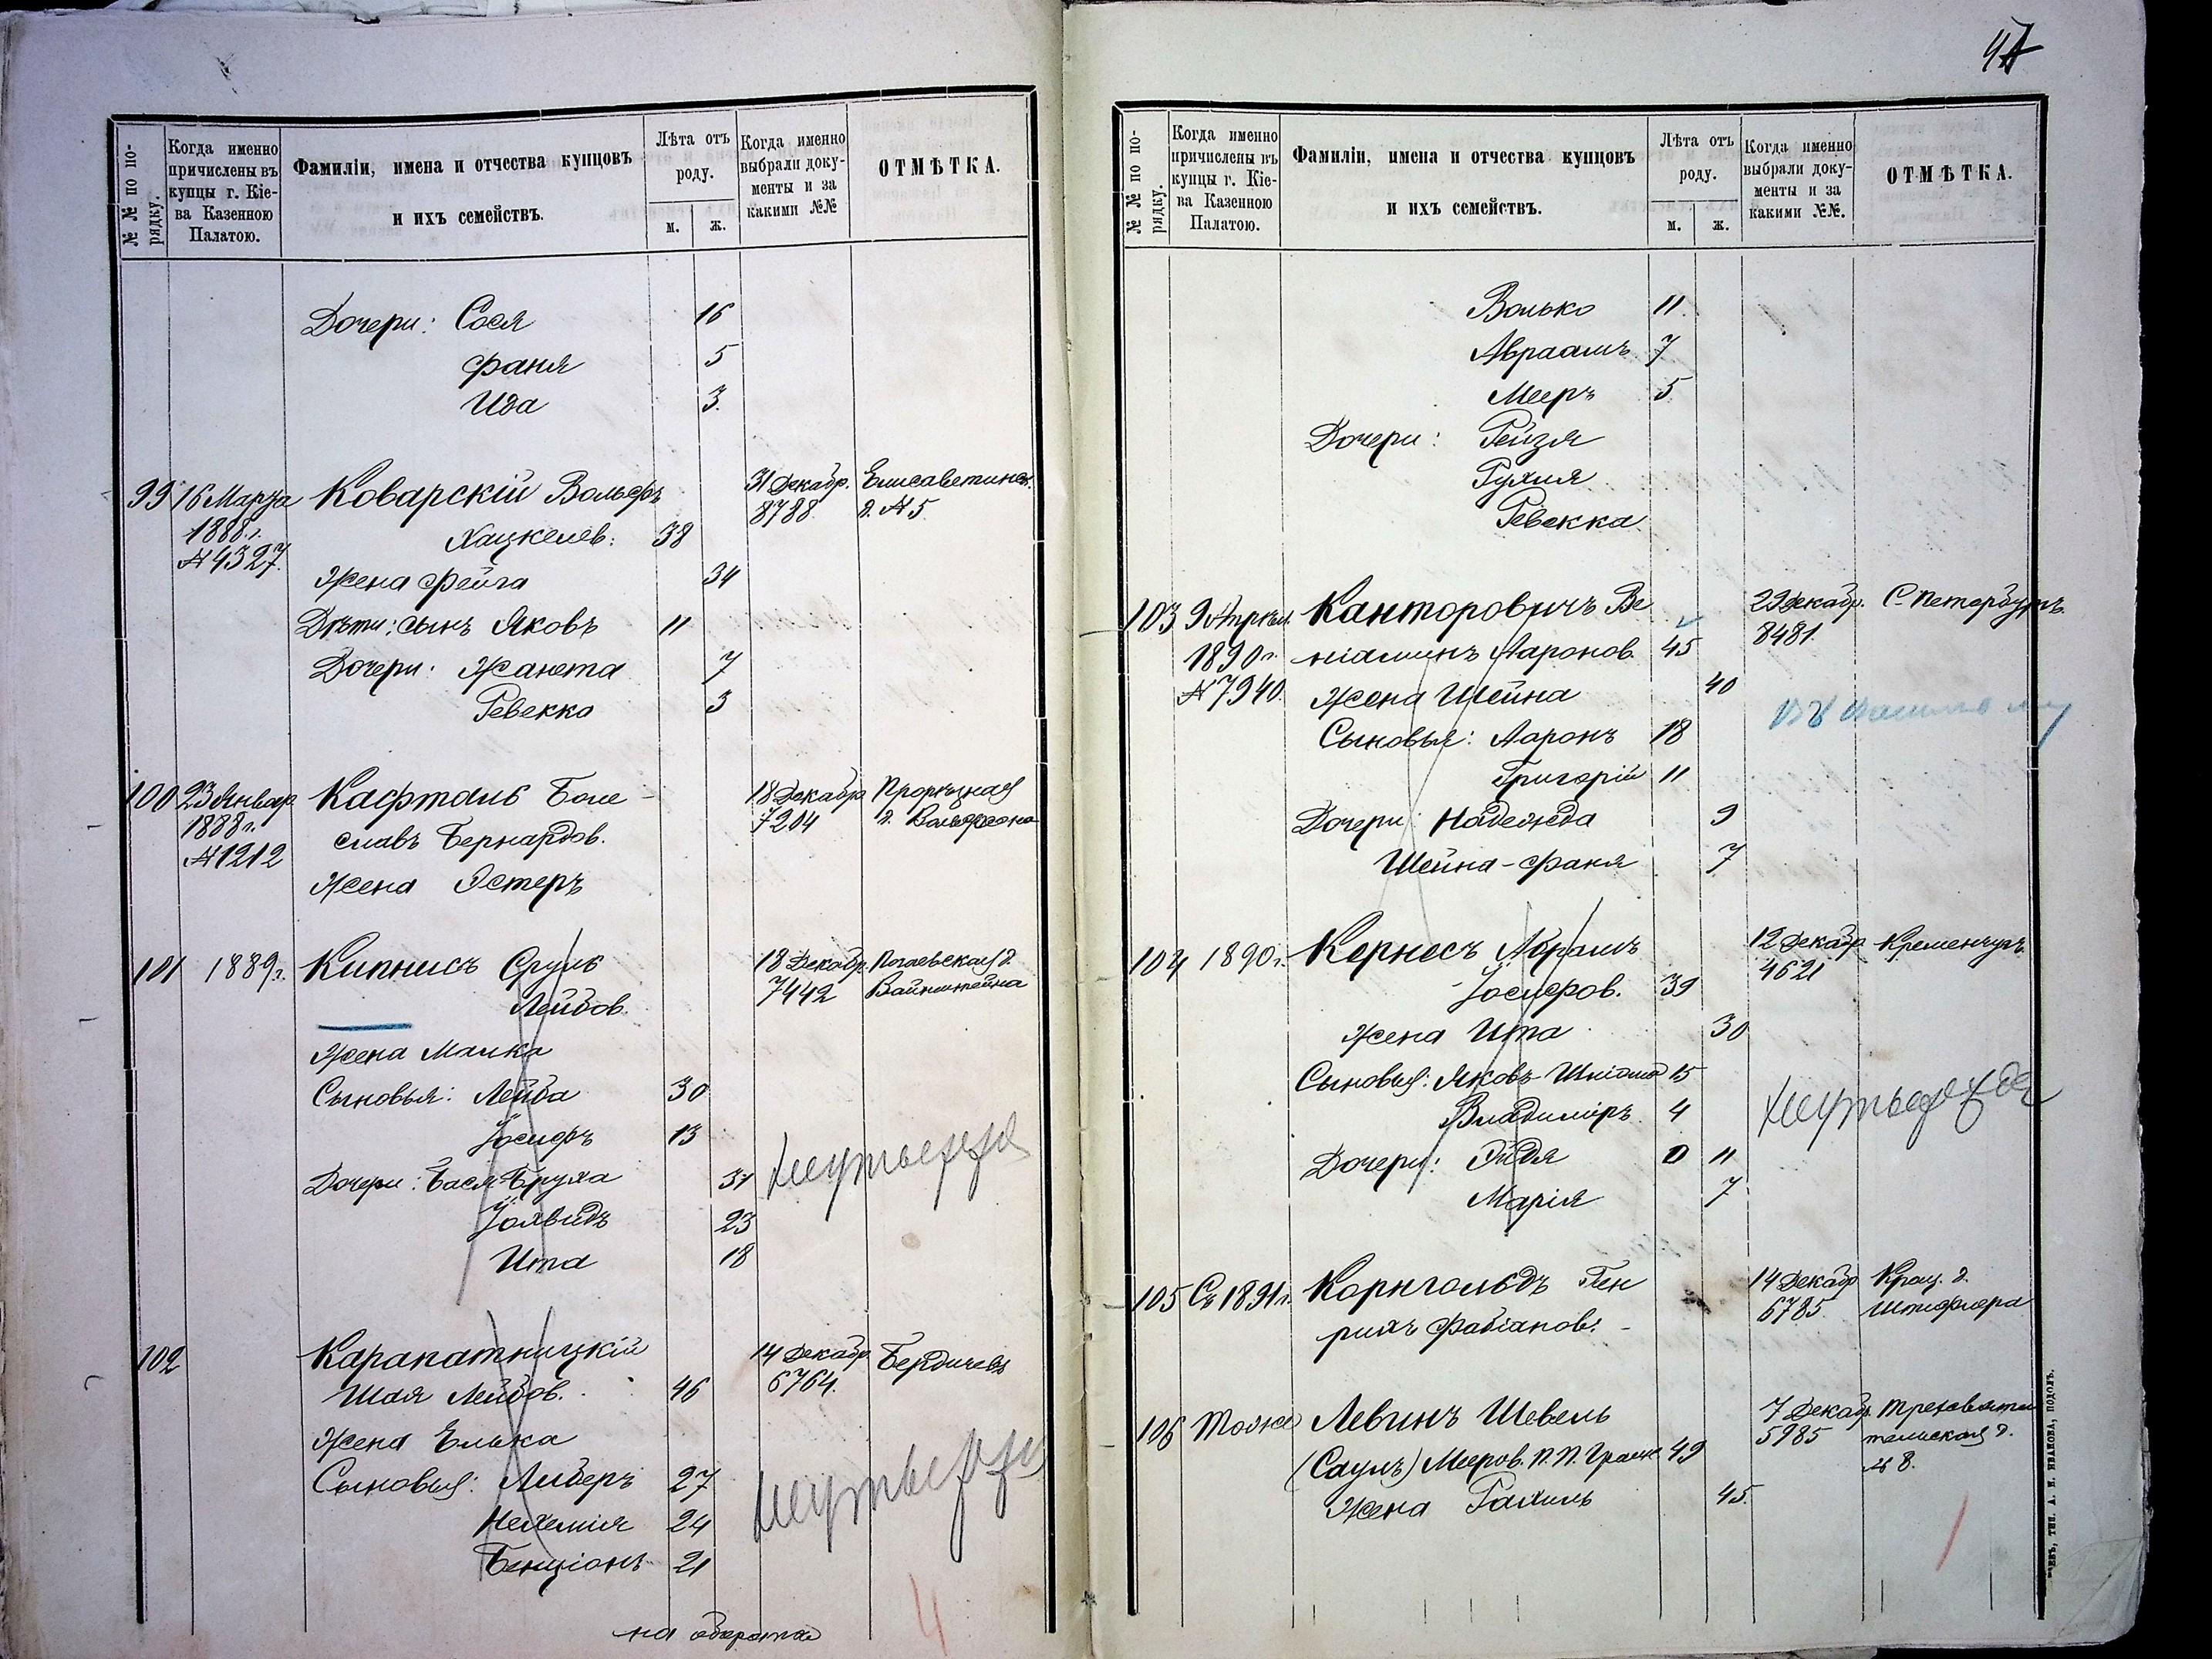 47
№ № по по-
рядку.
Когда именно
причислены въ
купцы г. Кіе-
ва Казенною
Палатою.
Фамиліи, имена и отчества купцовъ
и ихъ семействъ.
Лѣта отъ
роду.
м.
ж.
Когда именно
выбрали доку-
менты и за
какими №№
ОТМѢТКА.
Дочери: Сося 16
Фаня 5
Ида 3
99 16 Марта Коварскій Вольфъ 31 Декабр. Елисаветинск.
1888 г. Хацкелев. 38 8788 д. № 5
№ 4327.
Жена Фейга 34
Дѣти: сынъ Яковъ 11
Дочери: Жанета 7
Ревекка 3
100 23 Январ Кафталь Боле- 18 Декабр Прорѣзная
1888 г. славъ Бернардов. 7204 д. Вольфсона
№ 1212
Жена Эстеръ
101 1889 г. Кипнисъ Сруль 18 Декабр. Почаевская д.
Лейбов. 7442 Вайнштейна
Жена Малка
Сыновья: Лейба 30
Іосифъ 13
Дочери: Бася-Бруха 31
23
Ита 18
102 Карапатницкій 14 Декабр Бердичевъ
Шая Лейбов. 46 6764.
Жена Елька
Сыновья: Либеръ 27
Нехемія 24
Бенціонъ 21
на оборотѣ
4
№ № по по-
рядку.
Когда именно
причислены въ
купцы г. Кіе-
ва Казенною
Палатою.
Фамиліи, имена и отчества купцовъ
и ихъ семействъ.
Лѣта отъ
роду.
м.
ж.
Когда именно
выбрали доку-
менты и за
какими №№.
ОТМѢТКА.
Волько 11
Авраамъ 7
Мееръ 5
Дочери: Рейзя
Рухля
Ревекка
103 9 Апрѣл. Канторовичъ Ве 29 Декабр. С.-Петербургъ
1890 г. ніаминъ Ааронов. 45 8481.
№ 7940. Жена Шейна 40
Сыновья: Ааронъ 18
Григорій 11
Дочери: Надежда 9
Шейна-Фаня 7
104 1890 г. Кернесъ Абрамъ 12 Декабр Кременчугъ
Іосифов. 39 4621
Жена Ита 30
Сыновья: Яковъ-Шліома 15
Владиміръ 4
Дочери: Эйдя 11
Марія 7
105 Съ 1891 г. Корнгольдъ Ген 14 Декабр Крещ. д.
рихъ Фабіанов. 6785 Штифлера
106 Тоже Левинъ Шевель 7 Декабр. Трехсвяти
(Саулъ) Мееров. П. П. 49 5985 тельская д.
№ 8.
Жена Рахиль 45.
ТИП. А. Н. ИВАНОВА, ПОДОЛЪ.